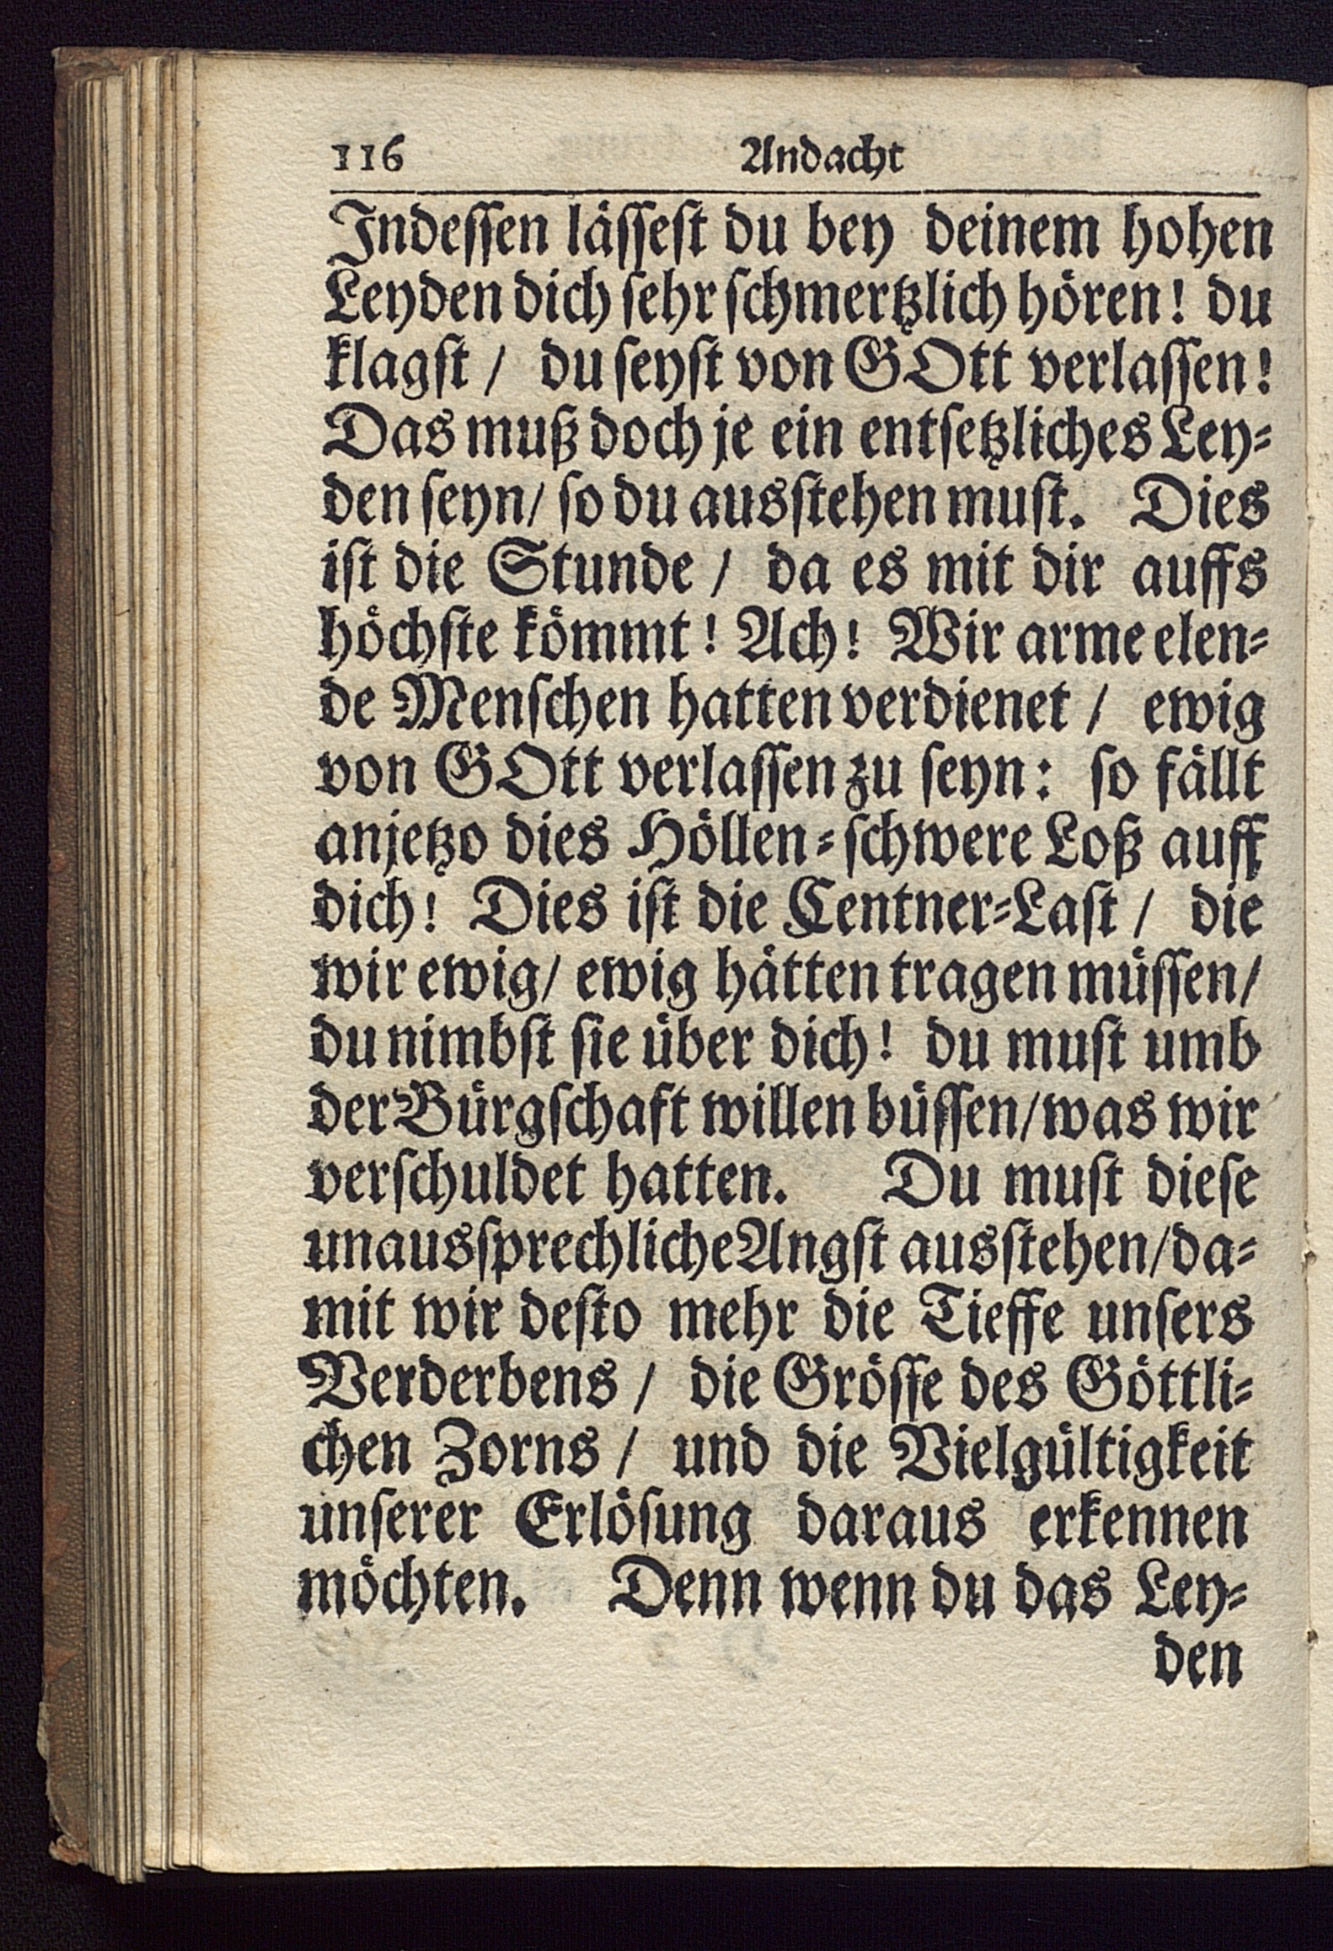 116 Andacht
Indeſſen läſſeſt du bey deinem hohen
Leyden dich ſehr ſchmertzlich hören! du
klagſt / du ſeyſt von GOtt verlaſſen!
Das muß doch je ein entſetzliches Ley-
den ſeyn/ ſo du ausſtehen muſt. Dies
iſt die Stunde / da es mit dir auffs
höchſte kömmt! Ach! Wir arme elen-
de Menſchen hatten verdienet / ewig
von GOtt verlaſſen zu ſeyn: ſo fällt
anjetzo dies Höllen-ſchwere Loß auff
dich! Dies iſt die Centner-Laſt / die
wir ewig/ ewig hätten tragen müſſen/
du nimbſt ſie über dich! du muſt umb
der Bürgſchaft willen büſſen/was wir
verſchuldet hatten. Du muſt dieſe
unausſprechliche Angſt ausſtehen/da-
mit wir deſto mehr die Tieffe unſers
Verderbens / die Gröſſe des Göttli-
chen Zorns / und die Vielgültigkeit
unſerer Erlöſung daraus erkennen
möchten. Denn wenn du das Ley-
den